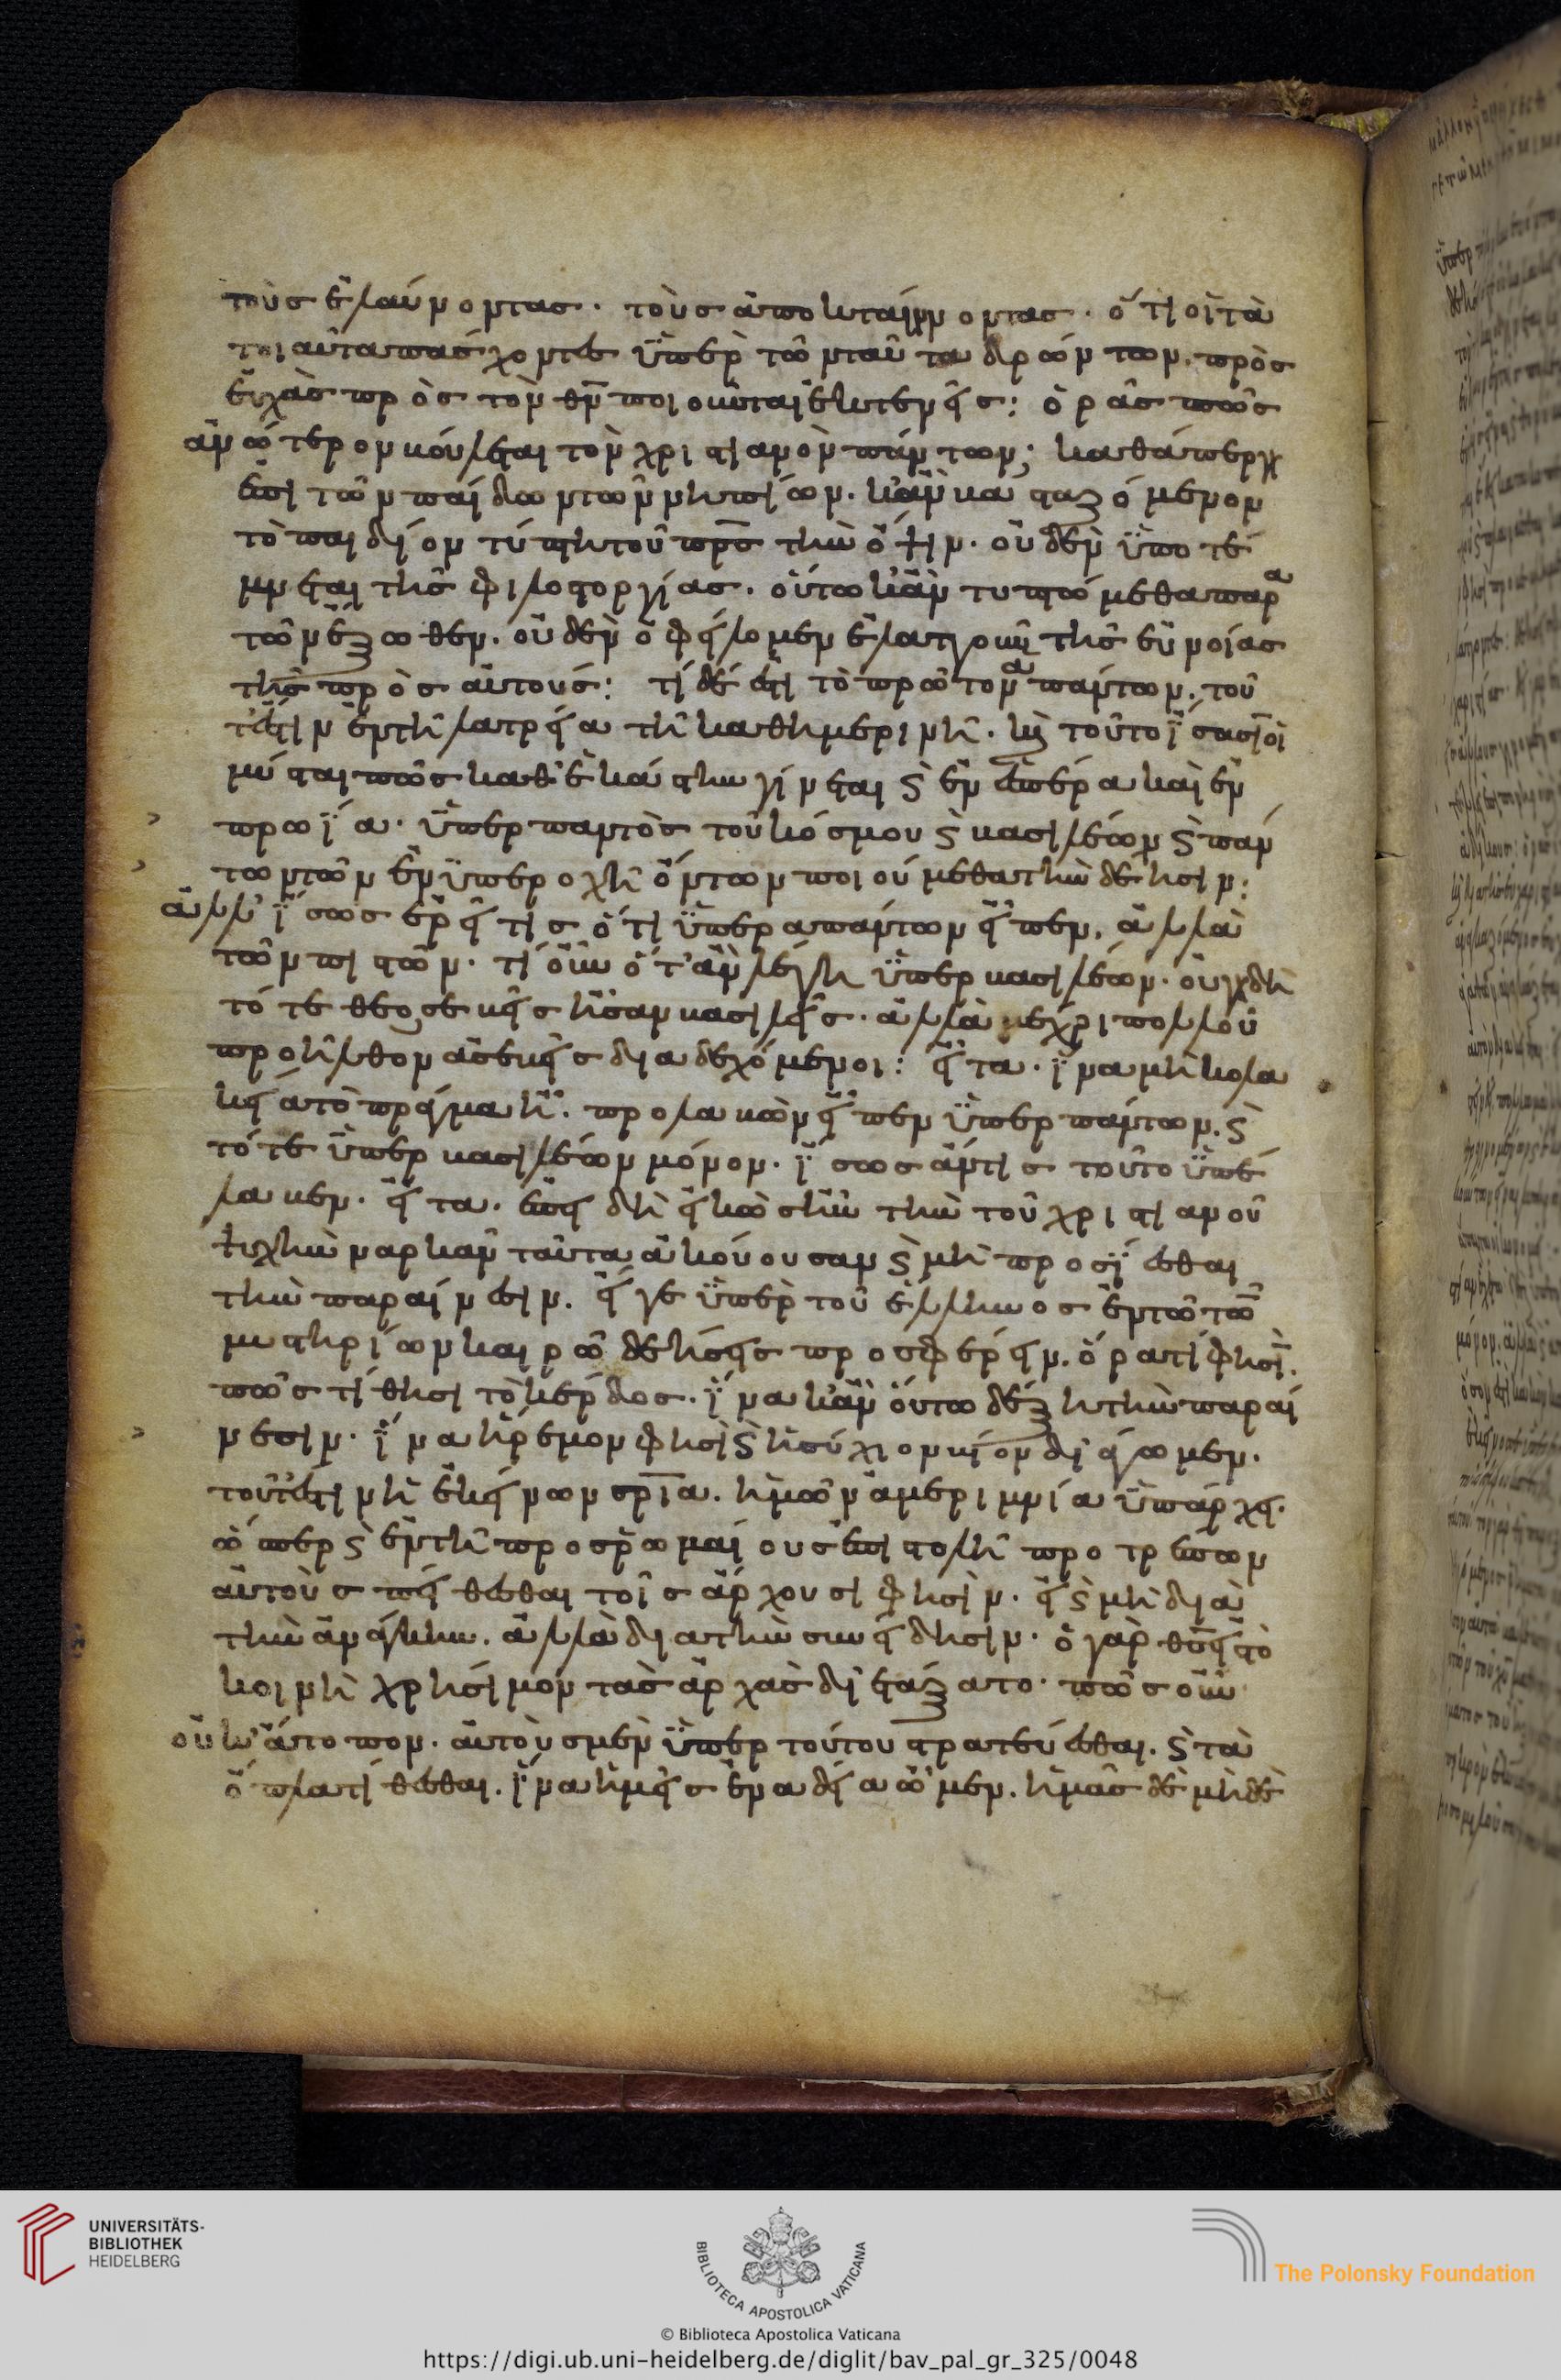 τοὺς ἐλαύνοντας· τοὺς ἀποκταίννοντας· ὅτι οἱ τὰ
τοιαῦτα πάσχοντες ὑπὲρ τῶν ταῦτα δρώντων, πρὸς
εὐχὰς πρὸς τὸν θν̄ ποιοῦνται ἐκτενεῖς: ὁρᾶς πῶς
ἀνώτερον βούλεται τὸν χριστιανὸν πάντων; καθάπερ γ(ὰρ)
ἐπὶ τῶν παίδων τῶν νηπίων. κἂν βασταζόμενον
τὸ παιδίον τύπτη τοῦ πρ̅ς τὴν ὄψιν. οὐδὲν ὑποτέ
μνεται τῆς φιλοστοργίας. οὕτω κἂν τυπτώμεθα παρὰ
τῶν ἔξωθεν. οὐδὲν ὀφείλομεν ἐλαττοῦν τῆς εὐνοίας
τῆς πρὸς αὐτούς: τί δέ ἐστι τὸ πρῶτον πάντων. του
τέστιν ἐν τῆ λατρεία τῆ καθημερινῆ. κ(αὶ) τοῦτο ἴσασιν οἱ
μύσται πῶς καθ' ἑκάστην γίνεται κ(αὶ) ἐν ἑσπέρα καὶ ἐν
πρωΐα· ὑπὲρ παντὸς τοῦ κόσμου κ(αὶ) βασιλέων κ(αὶ) πάν
των τῶν ἐν ὑπεροχῆ ὄντων ποιούμεθα τὴν δέησιν:
ἀλλ' ἴσως ἐρεῖ τις ὅτι ὑπὲρ ἁπάντων εἶπεν, ἀλλὰ
τῶν πιστῶν· τί οὖν ὅτ' ἂν λέγη ὑπὲρ βασιλέων. οὐ γ(ὰρ) δὴ
τότε θεοσεβεῖς ἦσαν βασιλεῖς· ἀλλὰ μέχρι πολλοῦ
προῆλθον ἀσεβεῖς διαδεχόμενοι: εἶτα· ἵνα μὴ κολα
κεία τὸ πρᾶγμα ἦ. προλαβὼν εἶπεν ὑπὲρ πάντων. κ(αὶ)
τότε ὑπὲρ βασιλέων μόνον· ἴσως ἄν τις τοῦτο ὑπέ
λαβεν. εἶτα. ἐπεὶ δὴ εἰκὸς ἦν τὴν τοῦ χριστιανοῦ
ψυχὴν ναρκᾶν ταῦτα ἀκούουσαν κ(αὶ) μὴ προσίεσθαι
τὴν παραίνεσιν. εἴ γε ὑπὲρ τοῦ ἕλληνος ἐν τῶ τῶν
μυστηρίων καιρῶ δεήσεις προσφέρειν. ὅρα τί φησιν.
πῶς τίθησι τὸ κέρδος. ἵνα κἂν οὕτω δέξητ(αι) τὴν παραί
νεσιν. ἵνα ἤρεμον φησὶ κ(αὶ) ἡσύχιον βίον διάγωμεν.
τουτέστιν ἡ ἐκείνων σρ̅ία. ἡμῶν ἀμεριμνία ὑπάρχει.
ὥσπερ κ(αὶ) ἐν τῆ πρὸς ῥωμαίους ἐπιστολῆ προτρέπων
αὐτοὺς πείθεσθαι τοῖς ἄρχουσι φησὶν. εἰ κ(αὶ) μὴ διὰ
τὴν ἀνάγκην. ἀλλὰ διὰ τὴν συνείδησιν. ὁ γὰρ θς̅ εἰς τὸ
κοινῆ χρήσιμον τὰς ἀρχὰς διετάξατο· πῶς οὖν
οὐκ ἄτοπον. αὐτοὺς μὲν ὑπὲρ τούτου στρατεύεσθαι. κ(αὶ) τὰ
ὅπλα τίθεσθαι. ἵνα ἡμεῖς ἐν ἀδεία ὦμεν. ἡμᾶς δὲ μηδὲ
UNIVERSITÄTS-
BIBLIOTHEK
HEIDELBERG
BIBLIOTECA APOSTOLICA VATICANA
The Polonsky Foundation
© Biblioteca Apostolica Vaticana
https://digi.ub.uni-heidelberg.de/diglit/bav_pal_gr_325/0048